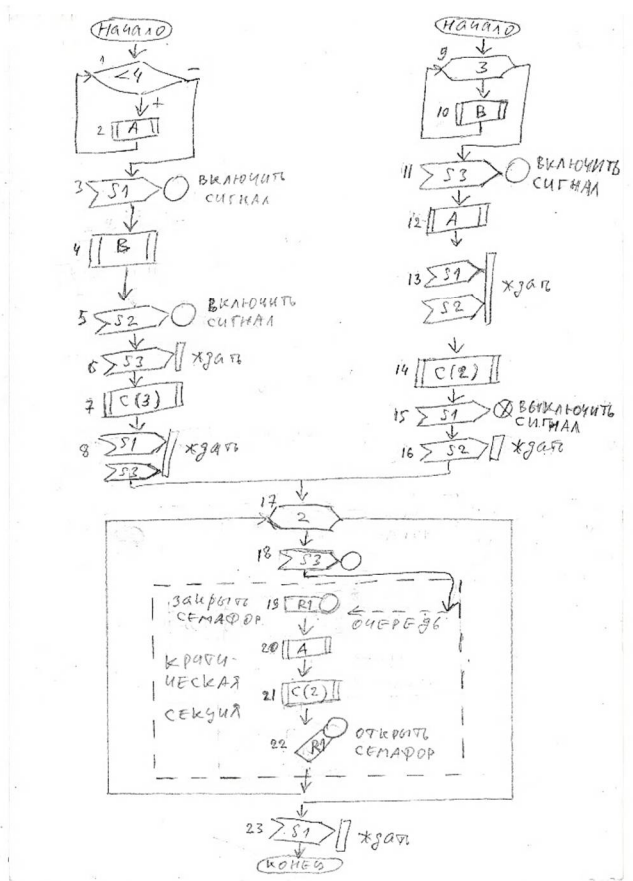 Начало
1
<4
−
+
2 A
3 S1 ВКЛЮЧИТЬ
СИГНАЛ
4 B
5 S2 ВКЛЮЧИТЬ
СИГНАЛ
6 S3 ждать
7 C(3)
8 S1
S3 ждать
Начало
9
3
10 B
11 S3 ВКЛЮЧИТЬ
СИГНАЛ
12 A
13 S1
S2 ждать
14 C(2)
15 S1 ВЫКЛЮЧИТЬ
СИГНАЛ
16 S2 ждать
17
2
18 S3
ЗАКРЫТЬ
СЕМАФОР
19 R1
ОЧЕРЕДЬ
20 A
КРИТИ-
ЧЕСКАЯ
СЕКЦИЯ
21 C(2)
22 R1
ОТКРЫТЬ
СЕМАФОР
23 S1 ждать
КОНЕЦ